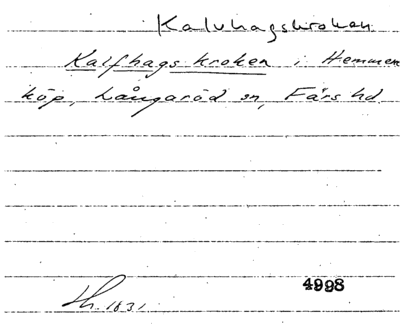 Kalvhagskroken
Kalfhags kroken i Hemmen
köp, Långaröd sn, Färs hd
4998
Lh. 1831